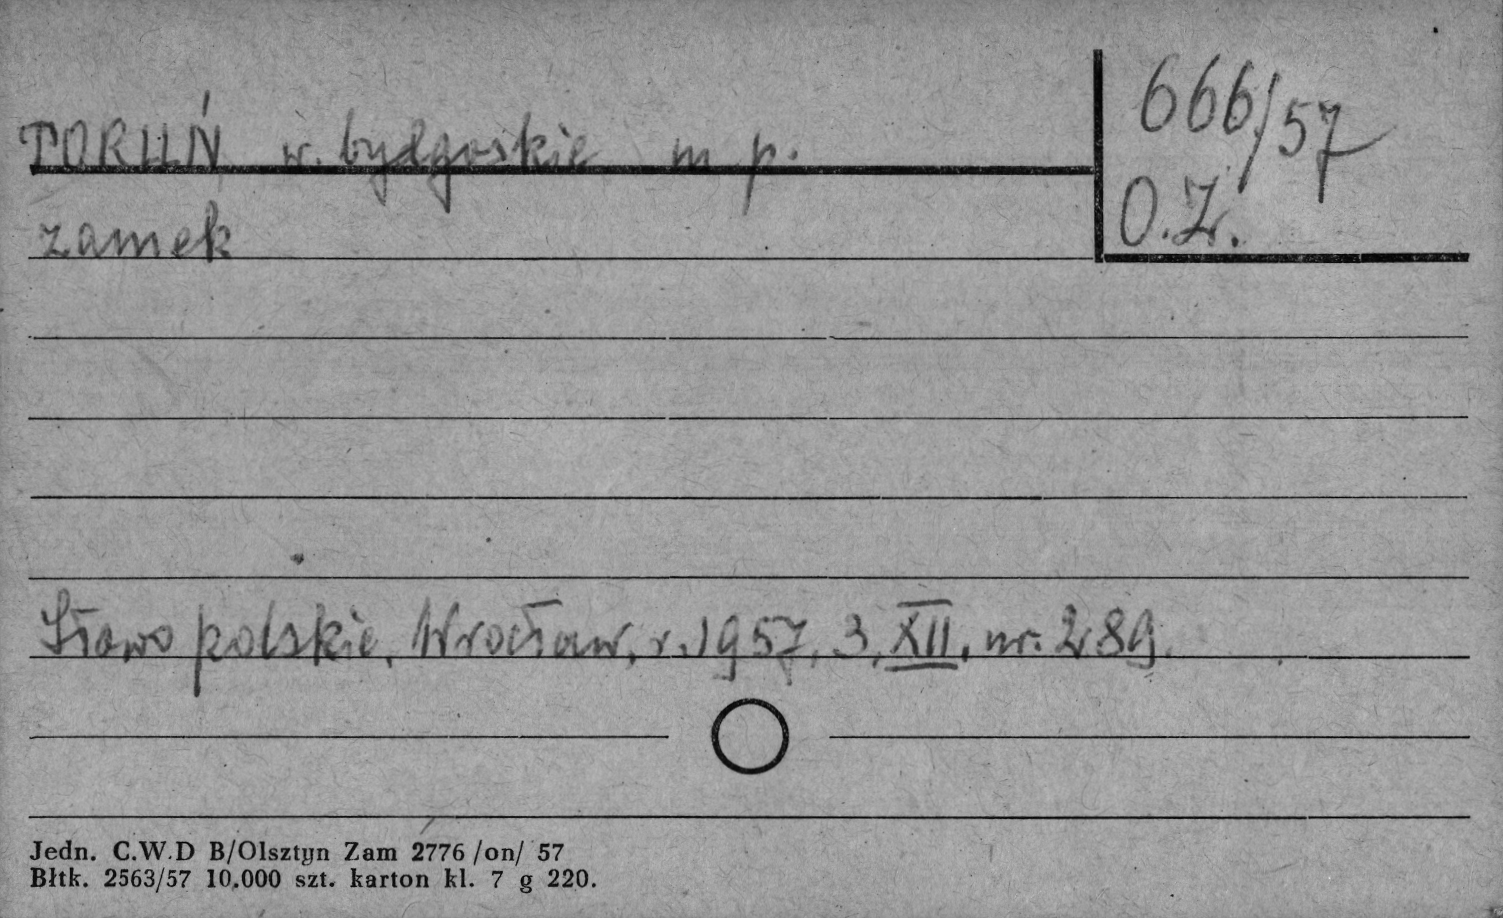 TORUŃ w. bydgoskie m p.
666/57
O.Z.
zamek
Słowo polskie, Wrocław, r. 1957, 3, XII, nr. 289.
Jedn. C.W.D B/Olsztyn Zam 2776 /on/ 57
Błtk. 2563/57 10.000 szt. karton kl. 7 g 220.